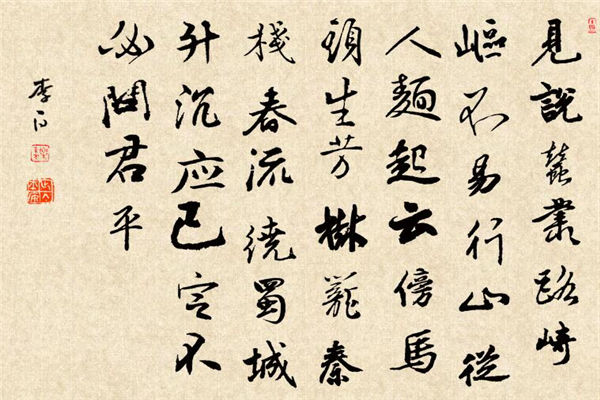 見説蠶叢路崎
嶇不易行山從
人麵起云傍馬
頭生芳樹籠秦
棧春流繞蜀城
升沉应已定不
必問君平
李白